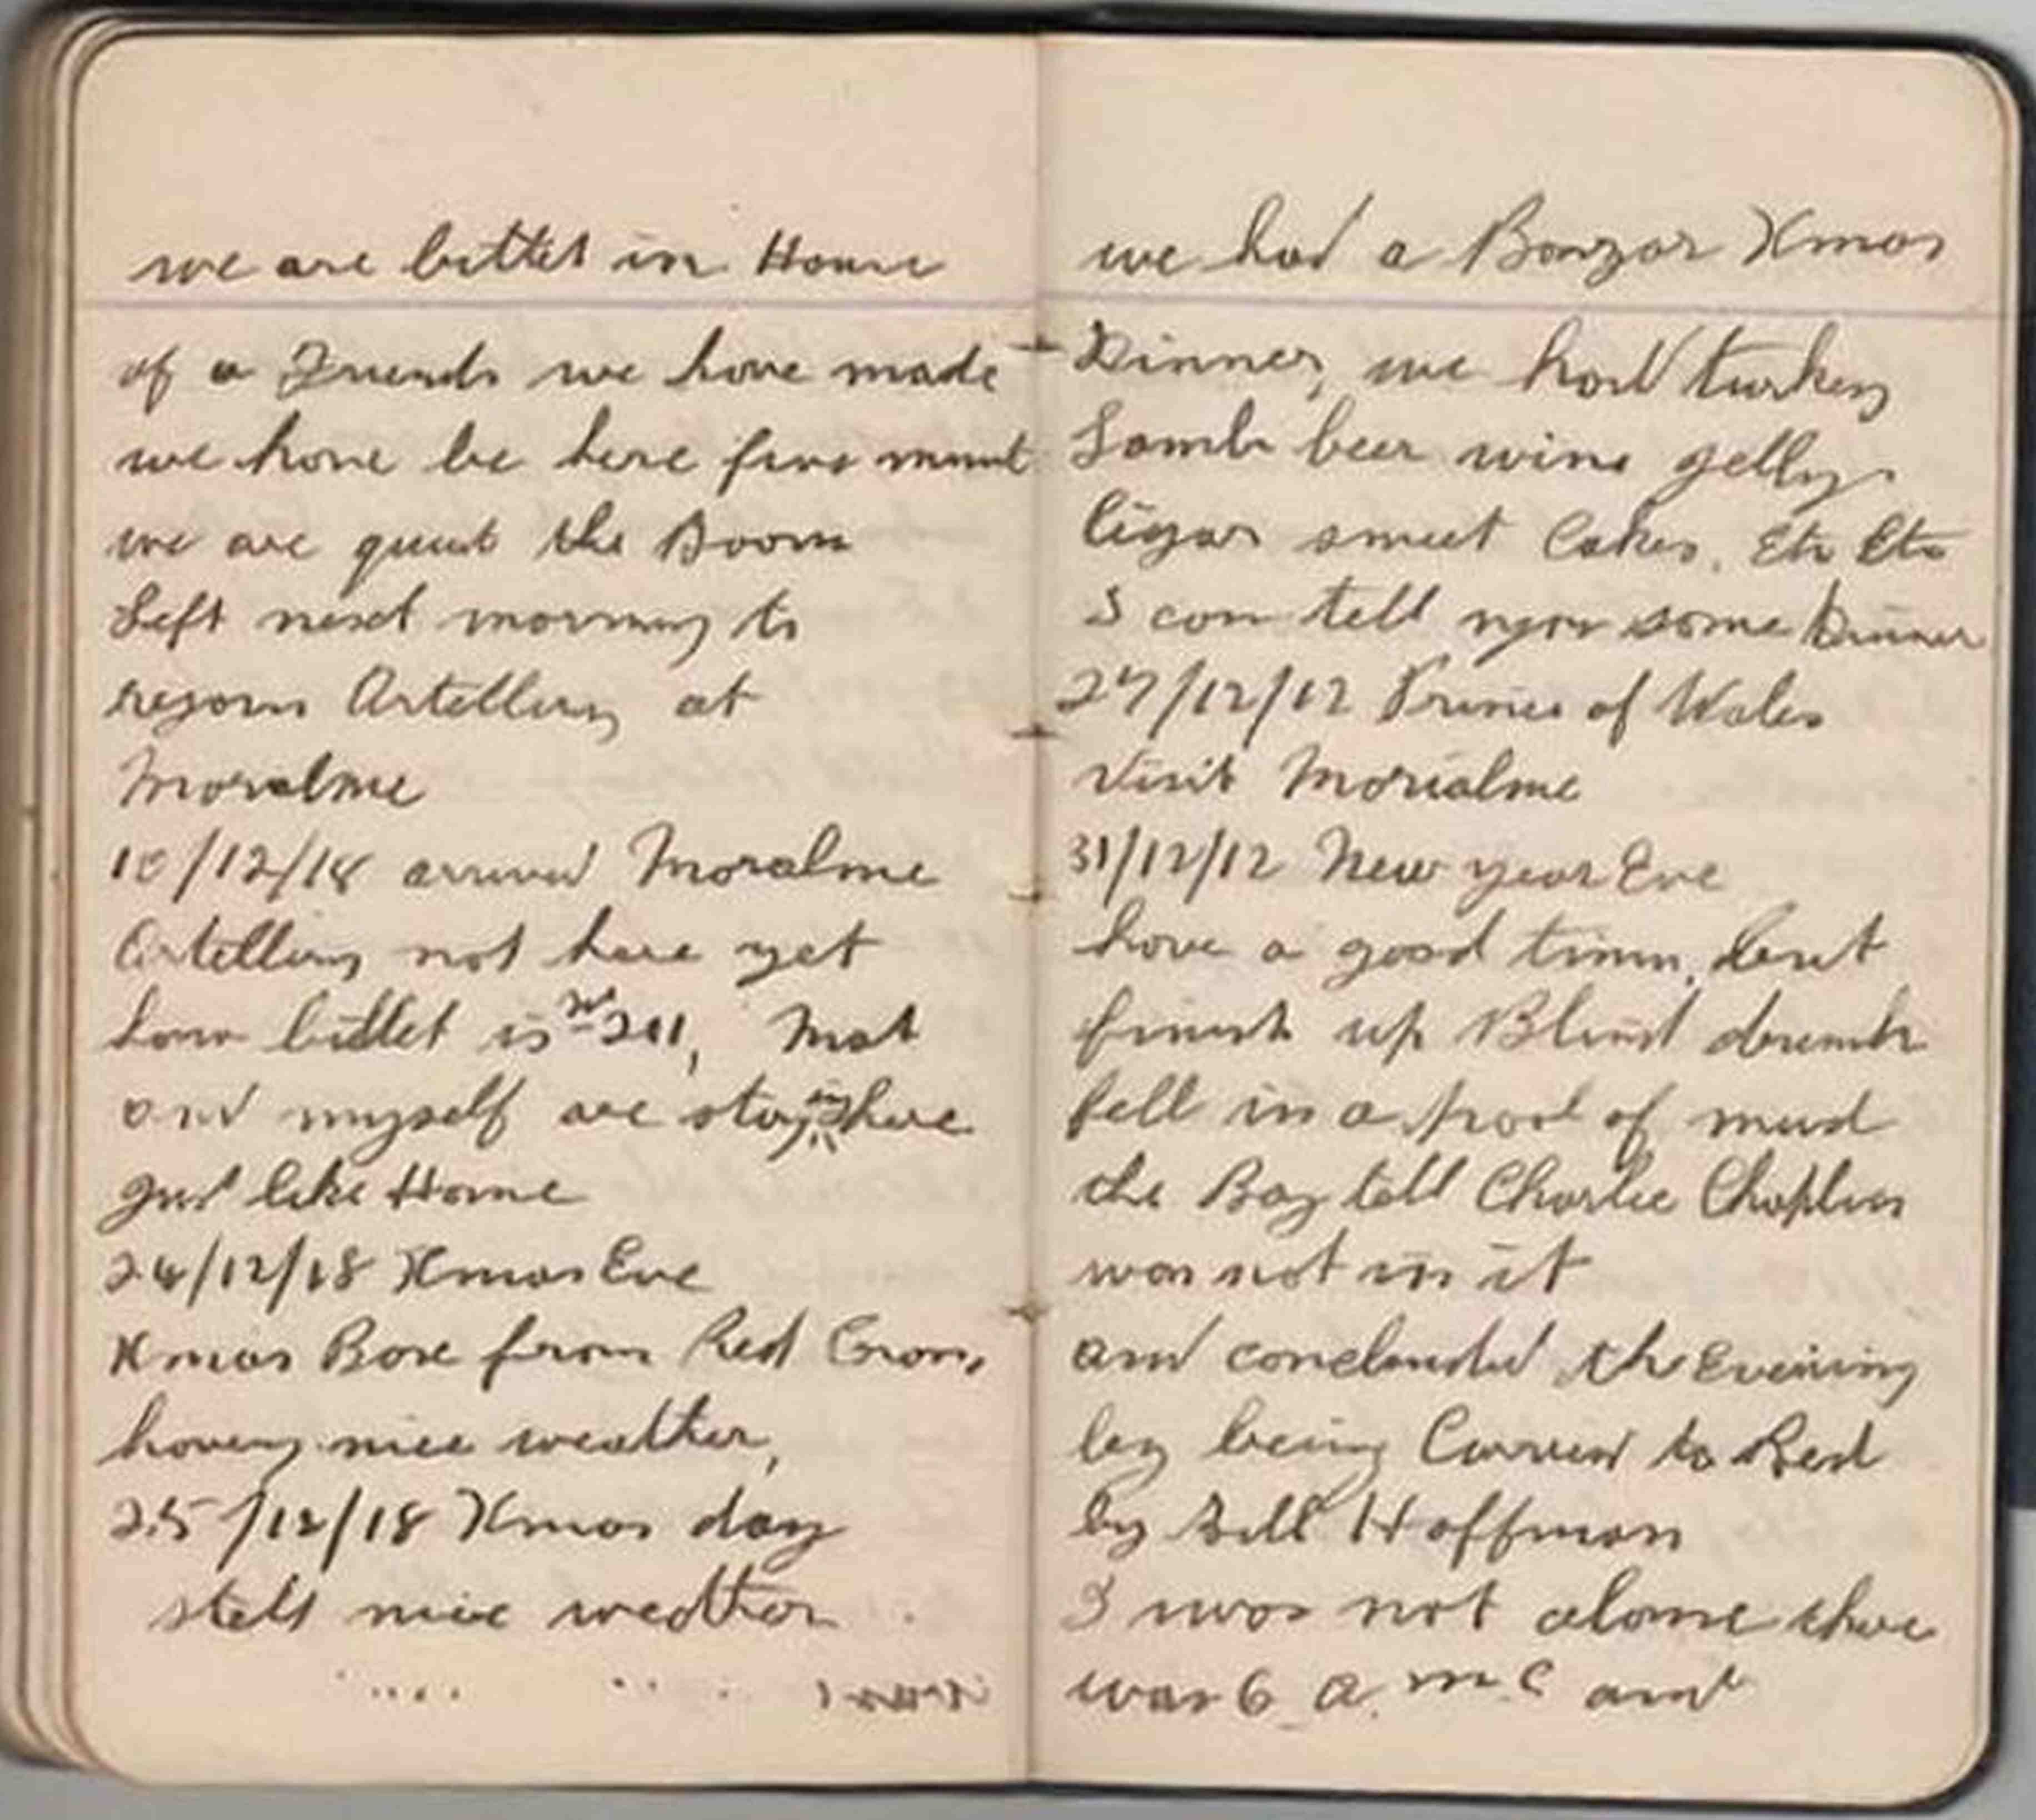 we are bittet in House
of a Friends we have made
we have be here five minut
we are quiet the Boom
Left next morning to
rejoin Artellery at
Moralme
18/12/18 arrived Moralme
Artellery not here yet
bittet is No 211, Mat
and myself are staying here
just like Home
24/12/18 Xmas Eve
Xmas Boxe from Red Cross,
having nice weather,
25/12/18 Xmas day
stell nice weather
we had a Bonzar Xmas
Dinner, we had turkey
Lamb beer wine gelly
Cigar sweet Cakes. Etc Etc
I can tell you some Dinner
27/12/12 Prince of Wales
visit Morialme
31/12/12 New year Eve
have a good time, but
finish up Blind
fell in a pool of mud
the Boy tell Charlie Chaplin
was not in it
and concluded the Evening
by being Carried to Bed
by Bill Hoffman
I was not alone there
was 6 A.M.C and